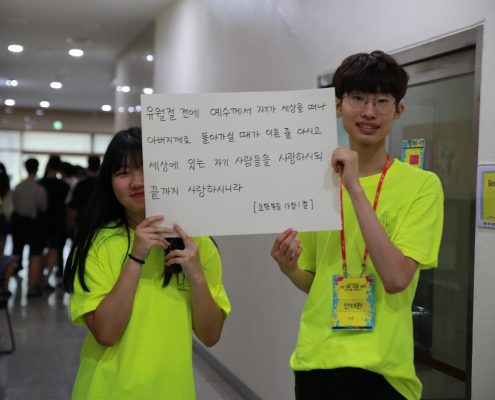 유월절 전에 예수께서 자기가 세상을 떠나
아버지께로 돌아가실 때가 이른 줄 아시고
세상에 있는 자기 사람들을 사랑하시되
끝까지 사랑하시니라
[요한복음 13장 1절]
안태환